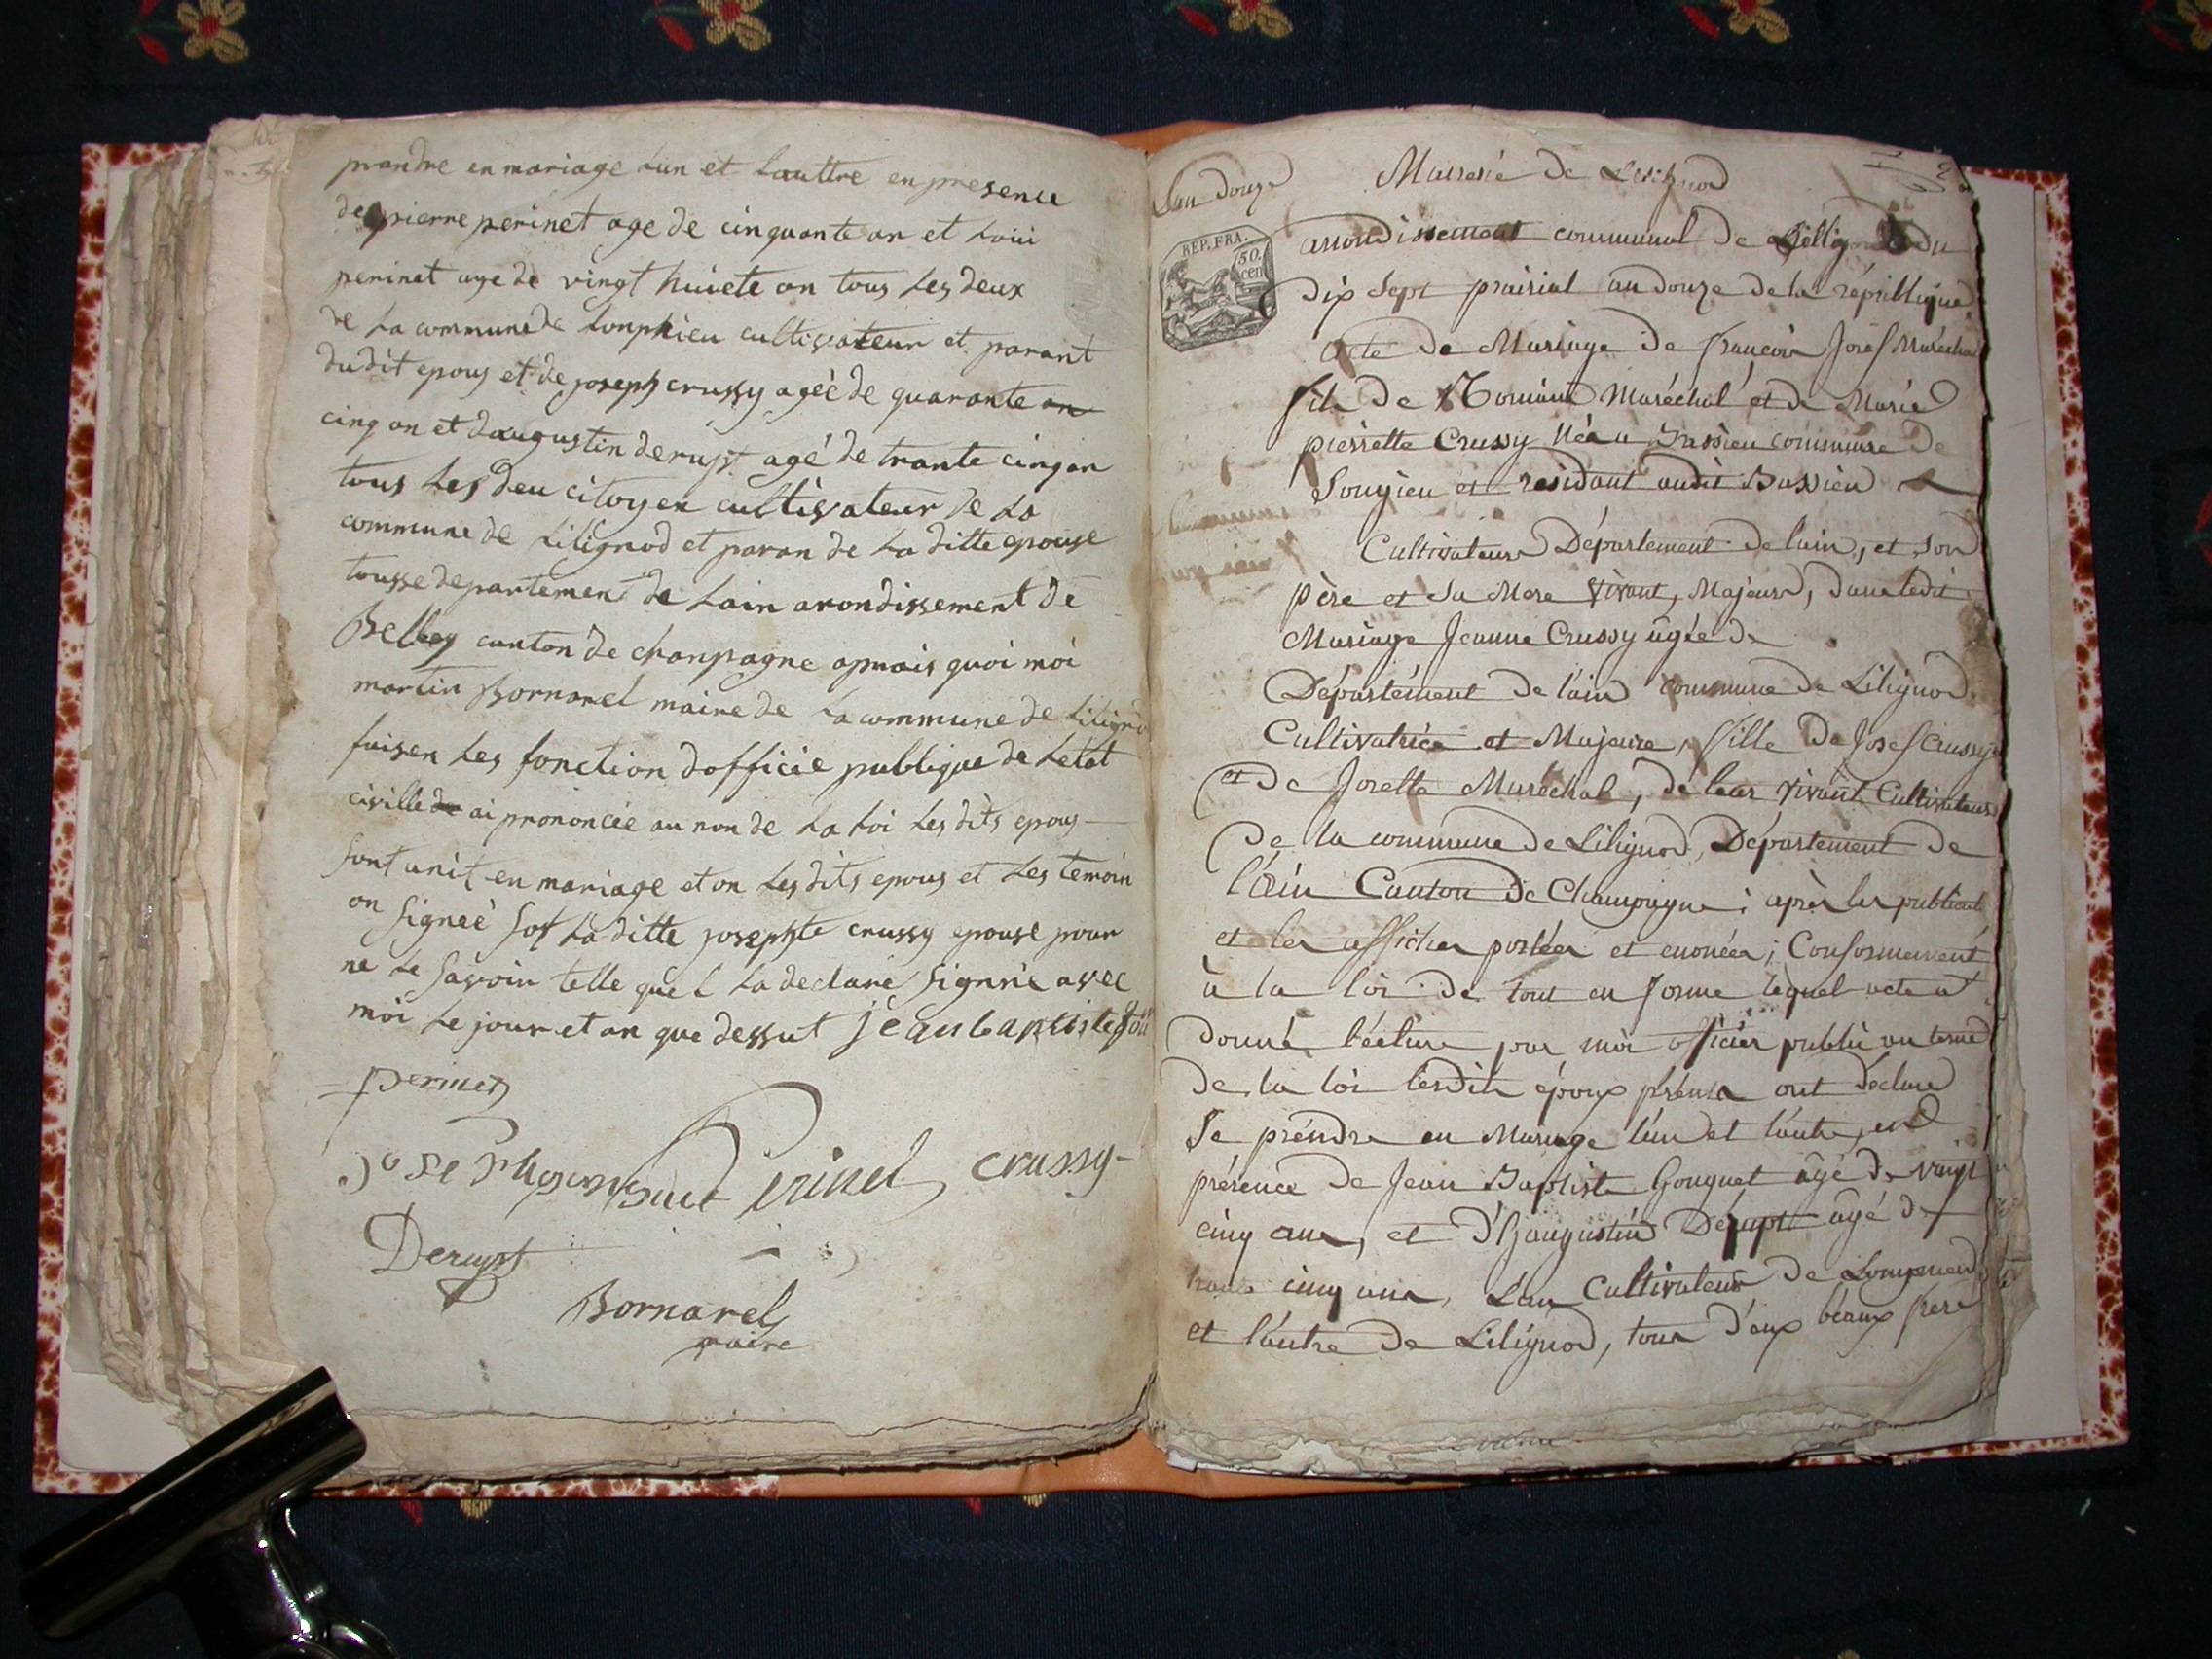 prandre en mariage lun et lauttre en presence
de pierre perinet age de cinquante an et loui
perinet age de vingt huiete an tous les deux
de la commune de lonphieu cultivateur et parant
dudit epous et de joseph crussy ageé de quarante an
cinq an et daugustin derupt agé de trante cinq an
tous les deu citoyen cultivateur de la
commune de Lilignod et paran de la ditte epouse
tousse departement de Lain arondissement de
Belley canton de chanpagne apmais quoi moi
martin Bornarel maire de la commune de Lilignod
faisen les fonction dofficie publique de letat
civille ai prononcée au non de la loi les dits epous
sont unit en mariage et on les dits epous et les temoin
on signeé sof la ditte josephte crussy epouse pour
ne le savoir telle quel la declaré signné avec
moi le jour et an que dessut jean baptiste
perinet
Perinet crussy
Derupt
Bornarel
maire
Lan douze
Mairerie de
REP. FRA.
50. cen
arrondissement communal de du
dix sept prairial an douze de la république
acte de Mariage de françois Josef Maréchal
fils de Romain Maréchal et de Marie
pierrette Crussy née a Bassieu commune de
Songieu et résidant audit Bassieu
Cultivateurs Département de l'ain, et son
père et sa Mere vivant, Majeurs, dans ledit
Mariage Jeanne Crussy âgée de
Département de l'ain commune de Lilignod
Cultivatrice et Majeure, fille de Josef Crussy
et de Josette Maréchal, de leur vivant Cultivateurs
de la commune de Lilignod, Département de
l'Ain Canton de Champagne; après les publicat
et les affiches portées et enoncées; Conformement
à la loi de tout en forme lequel acte a
donné lécture par moi officier public au terme
de la loi lesdits époux présents ont déclaré
Se préndre en Mariage l'un et l'autre, en
présence de Jean Baptiste Gouguet âgé de vingt
cinq ans, et d'augustin Dérupt âgé de
trente cinq ans, L'un Cultivateur de
et l'autre de Lilignod, tous d'eux béaux frere